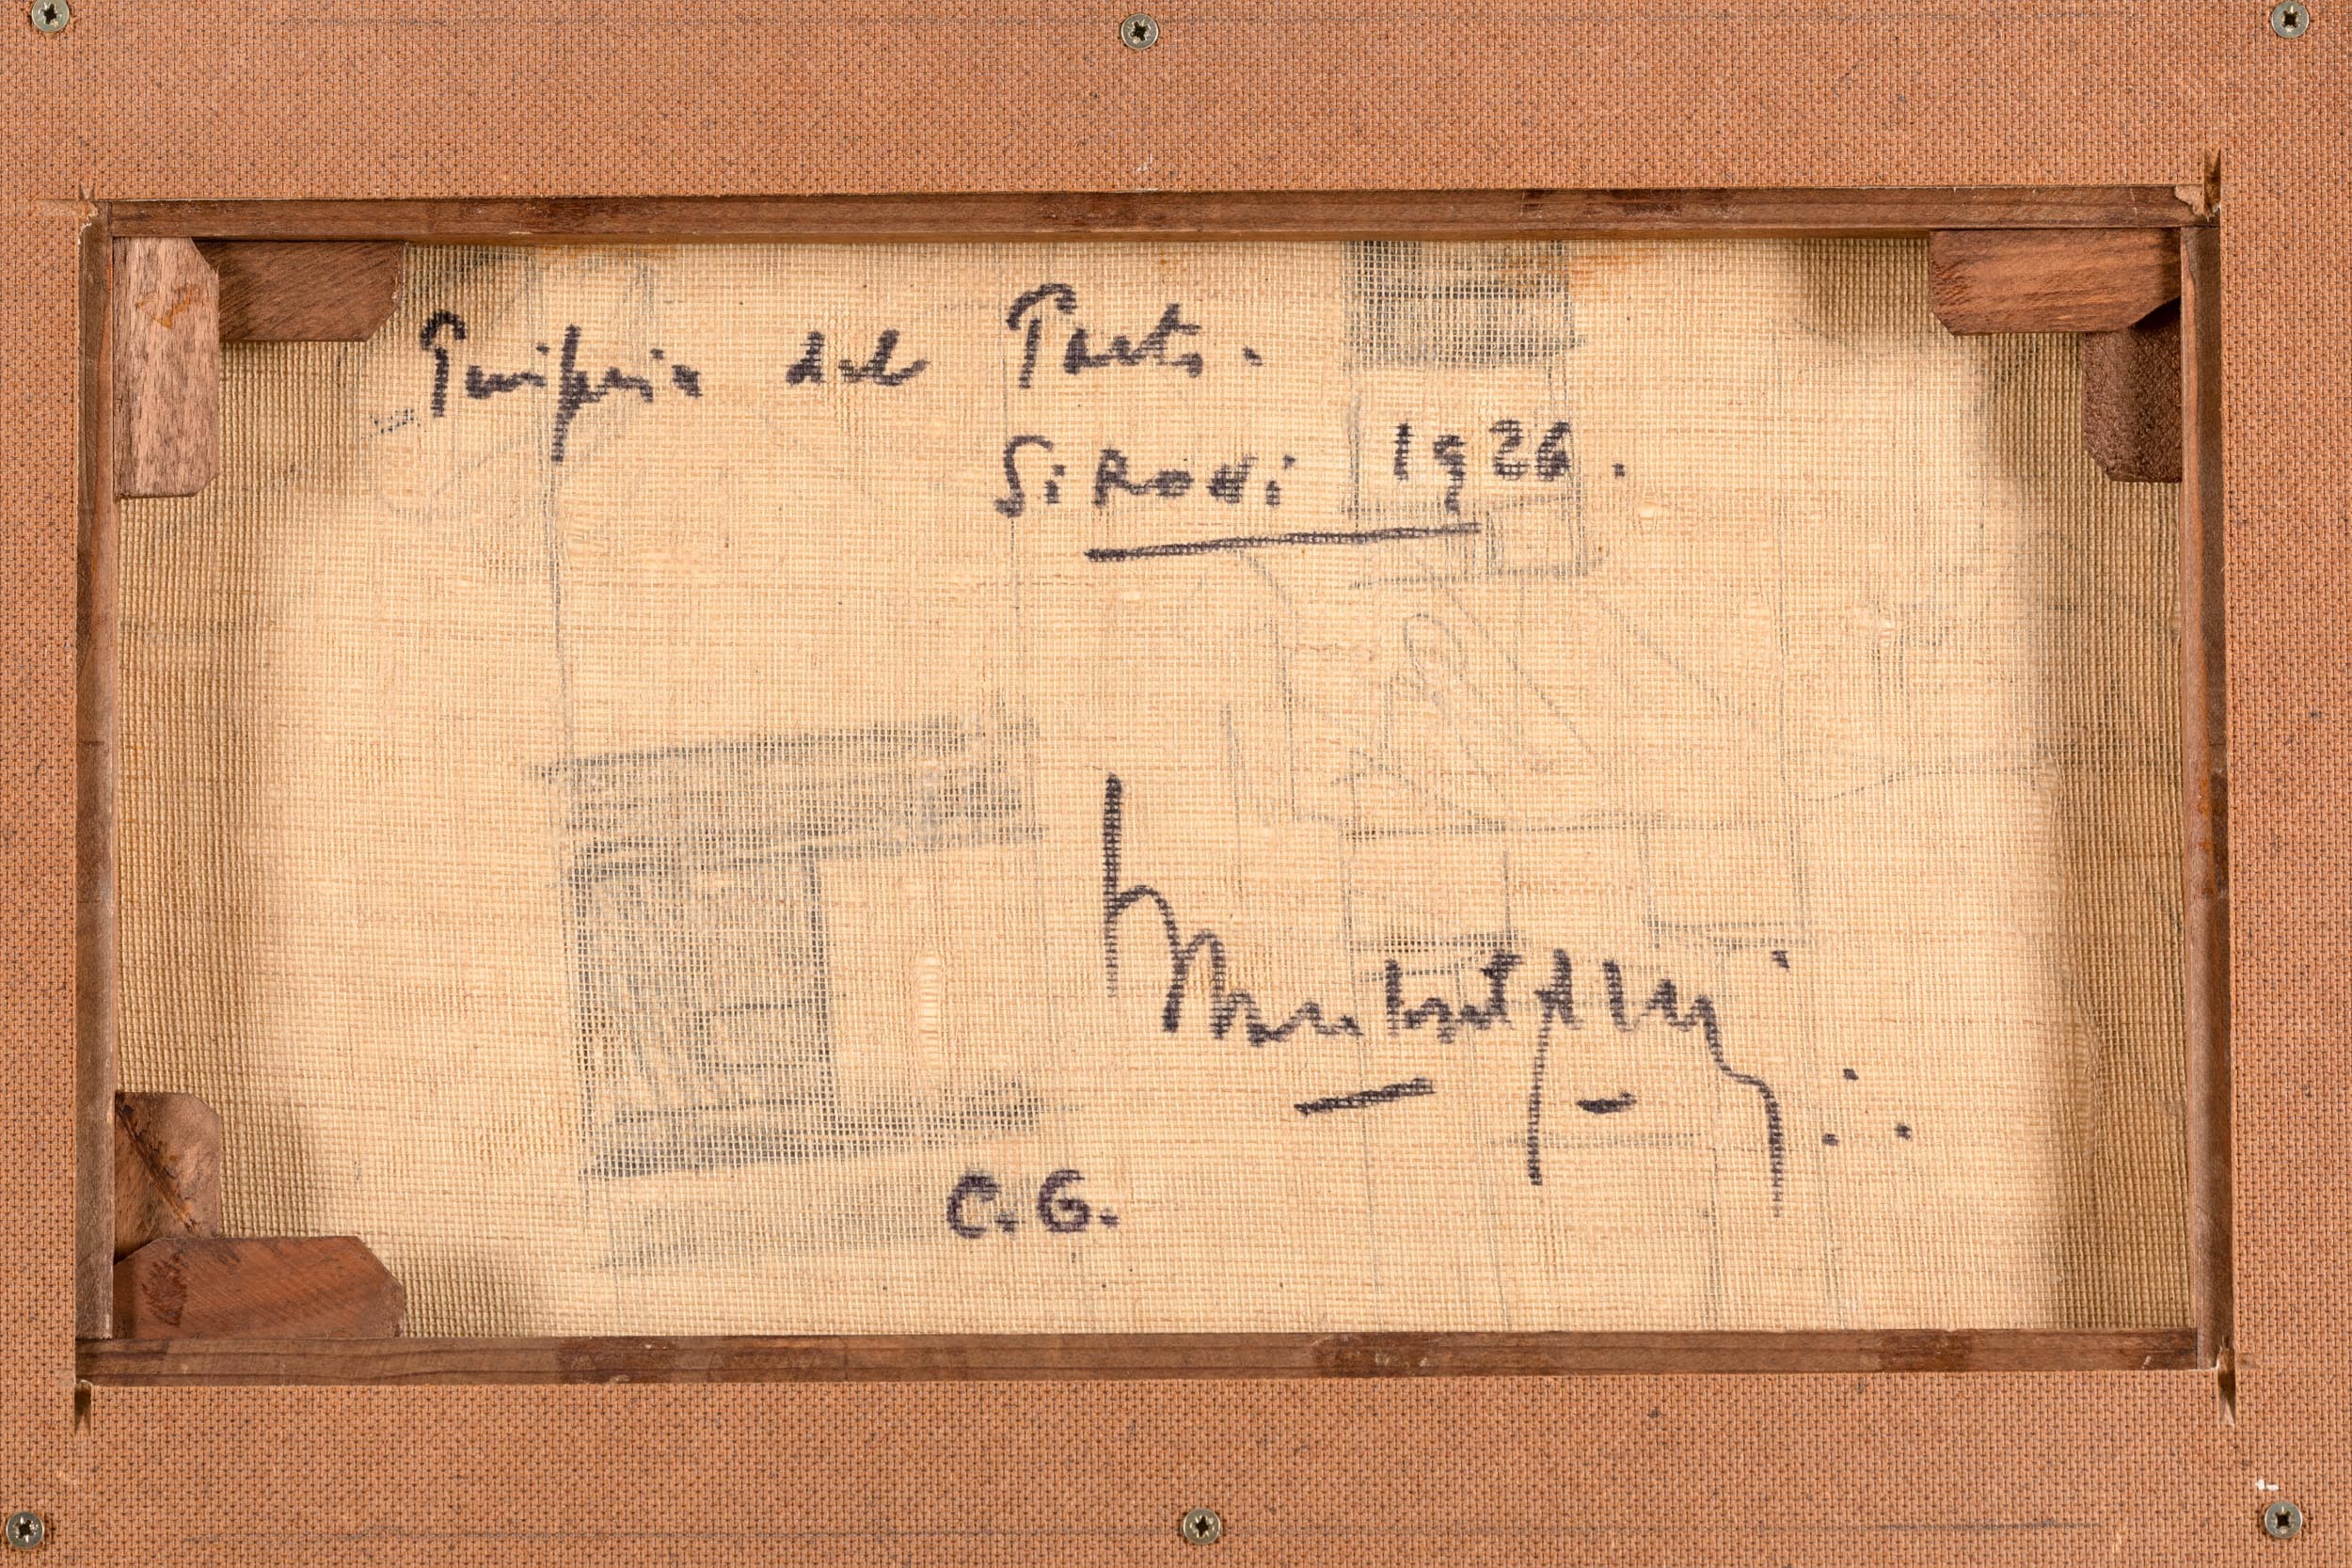 Periferia del Porto.
SiRoNi 1926.
C.G.